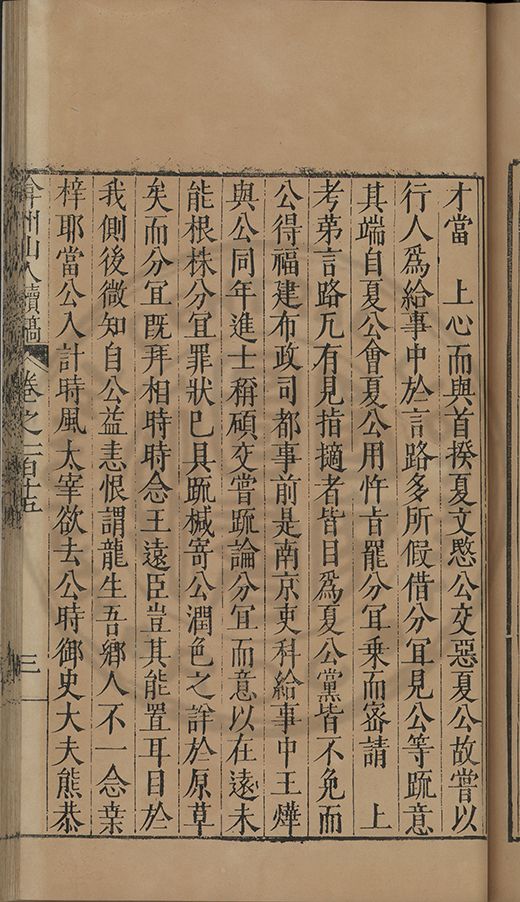 才當　上心而與首揆夏文愍公交惡夏公故嘗以
行人爲給事中於言路多所假借分冝見公等疏意
其端自夏公會夏公用忤㫖罷分冝乗而宻請　上
考第言路凡有見指擿者皆目爲夏公黨皆不免而
公得福建布政司都事前是南京吏科給事中王燁
與公同年進士稱碩交嘗疏論分冝而意以在遠未
能根株分冝罪狀巳具疏槭寄公潤色之詳於原草
矣而分冝旣拜相時時念王遠臣豈其能置耳目於
我側後微知自公益恚恨謂龍生吾鄉人不一念桒
梓耶當公入計時風太宰欲去公時御史大夫熊恭
弇州山人續稿　卷之一百廿五　三